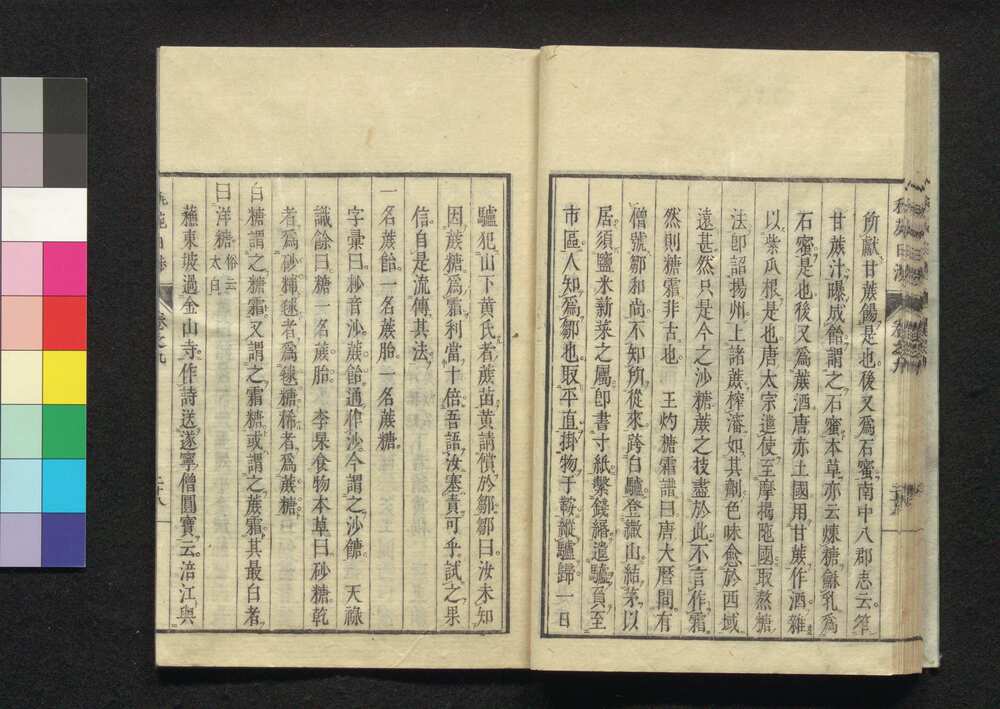 所獻甘蔗餳是也後又爲石蜜南中八郡志云笮
甘蔗汁曝成餳謂之石蜜本草亦云煉糖龢乳爲
石蜜是也後又爲蔗酒唐赤土國用甘蔗作酒雜
以紫瓜根是也唐太宗遣使至摩揭陁國取熬糖
法卽詔揚州上諸蔗榨瀋如其劑色味愈於西域
遠甚然只是今之沙糖蔗之技盡於此不言作霜
然則糖霜非古也　王灼糖霜譜曰唐大曆間有
僧號鄒和尚不知所從來跨白驢登繖山結茅以
居須鹽米新菜之屬卽書寸紙繫錢緡遣驢負至
市區人知爲鄒也取平直掛物于鞍縱驢歸一日
驢犯山下黄氏者蔗苗黄請償於鄒鄒曰汝未知
因蔗糖爲霜利當十倍吾語汝塞責可乎試之果
信自是流傳其法
一名蔗飴一名蔗胎一名蔗糖
字彙曰桫音沙蔗飴通作沙今謂之沙餹　天祿
識餘曰糖一名蔗胎　李杲食物本草曰砂糖乾
者爲砂糖毬者爲毬糖稀者爲蔗糖
白糖謂之糖霜又謂之霜糖或謂之蔗霜其最白者
曰洋糖俗云太白
蘓東坡過金山寺作詩送遂寧僧圓寶云涪江與
卷之九
二十八